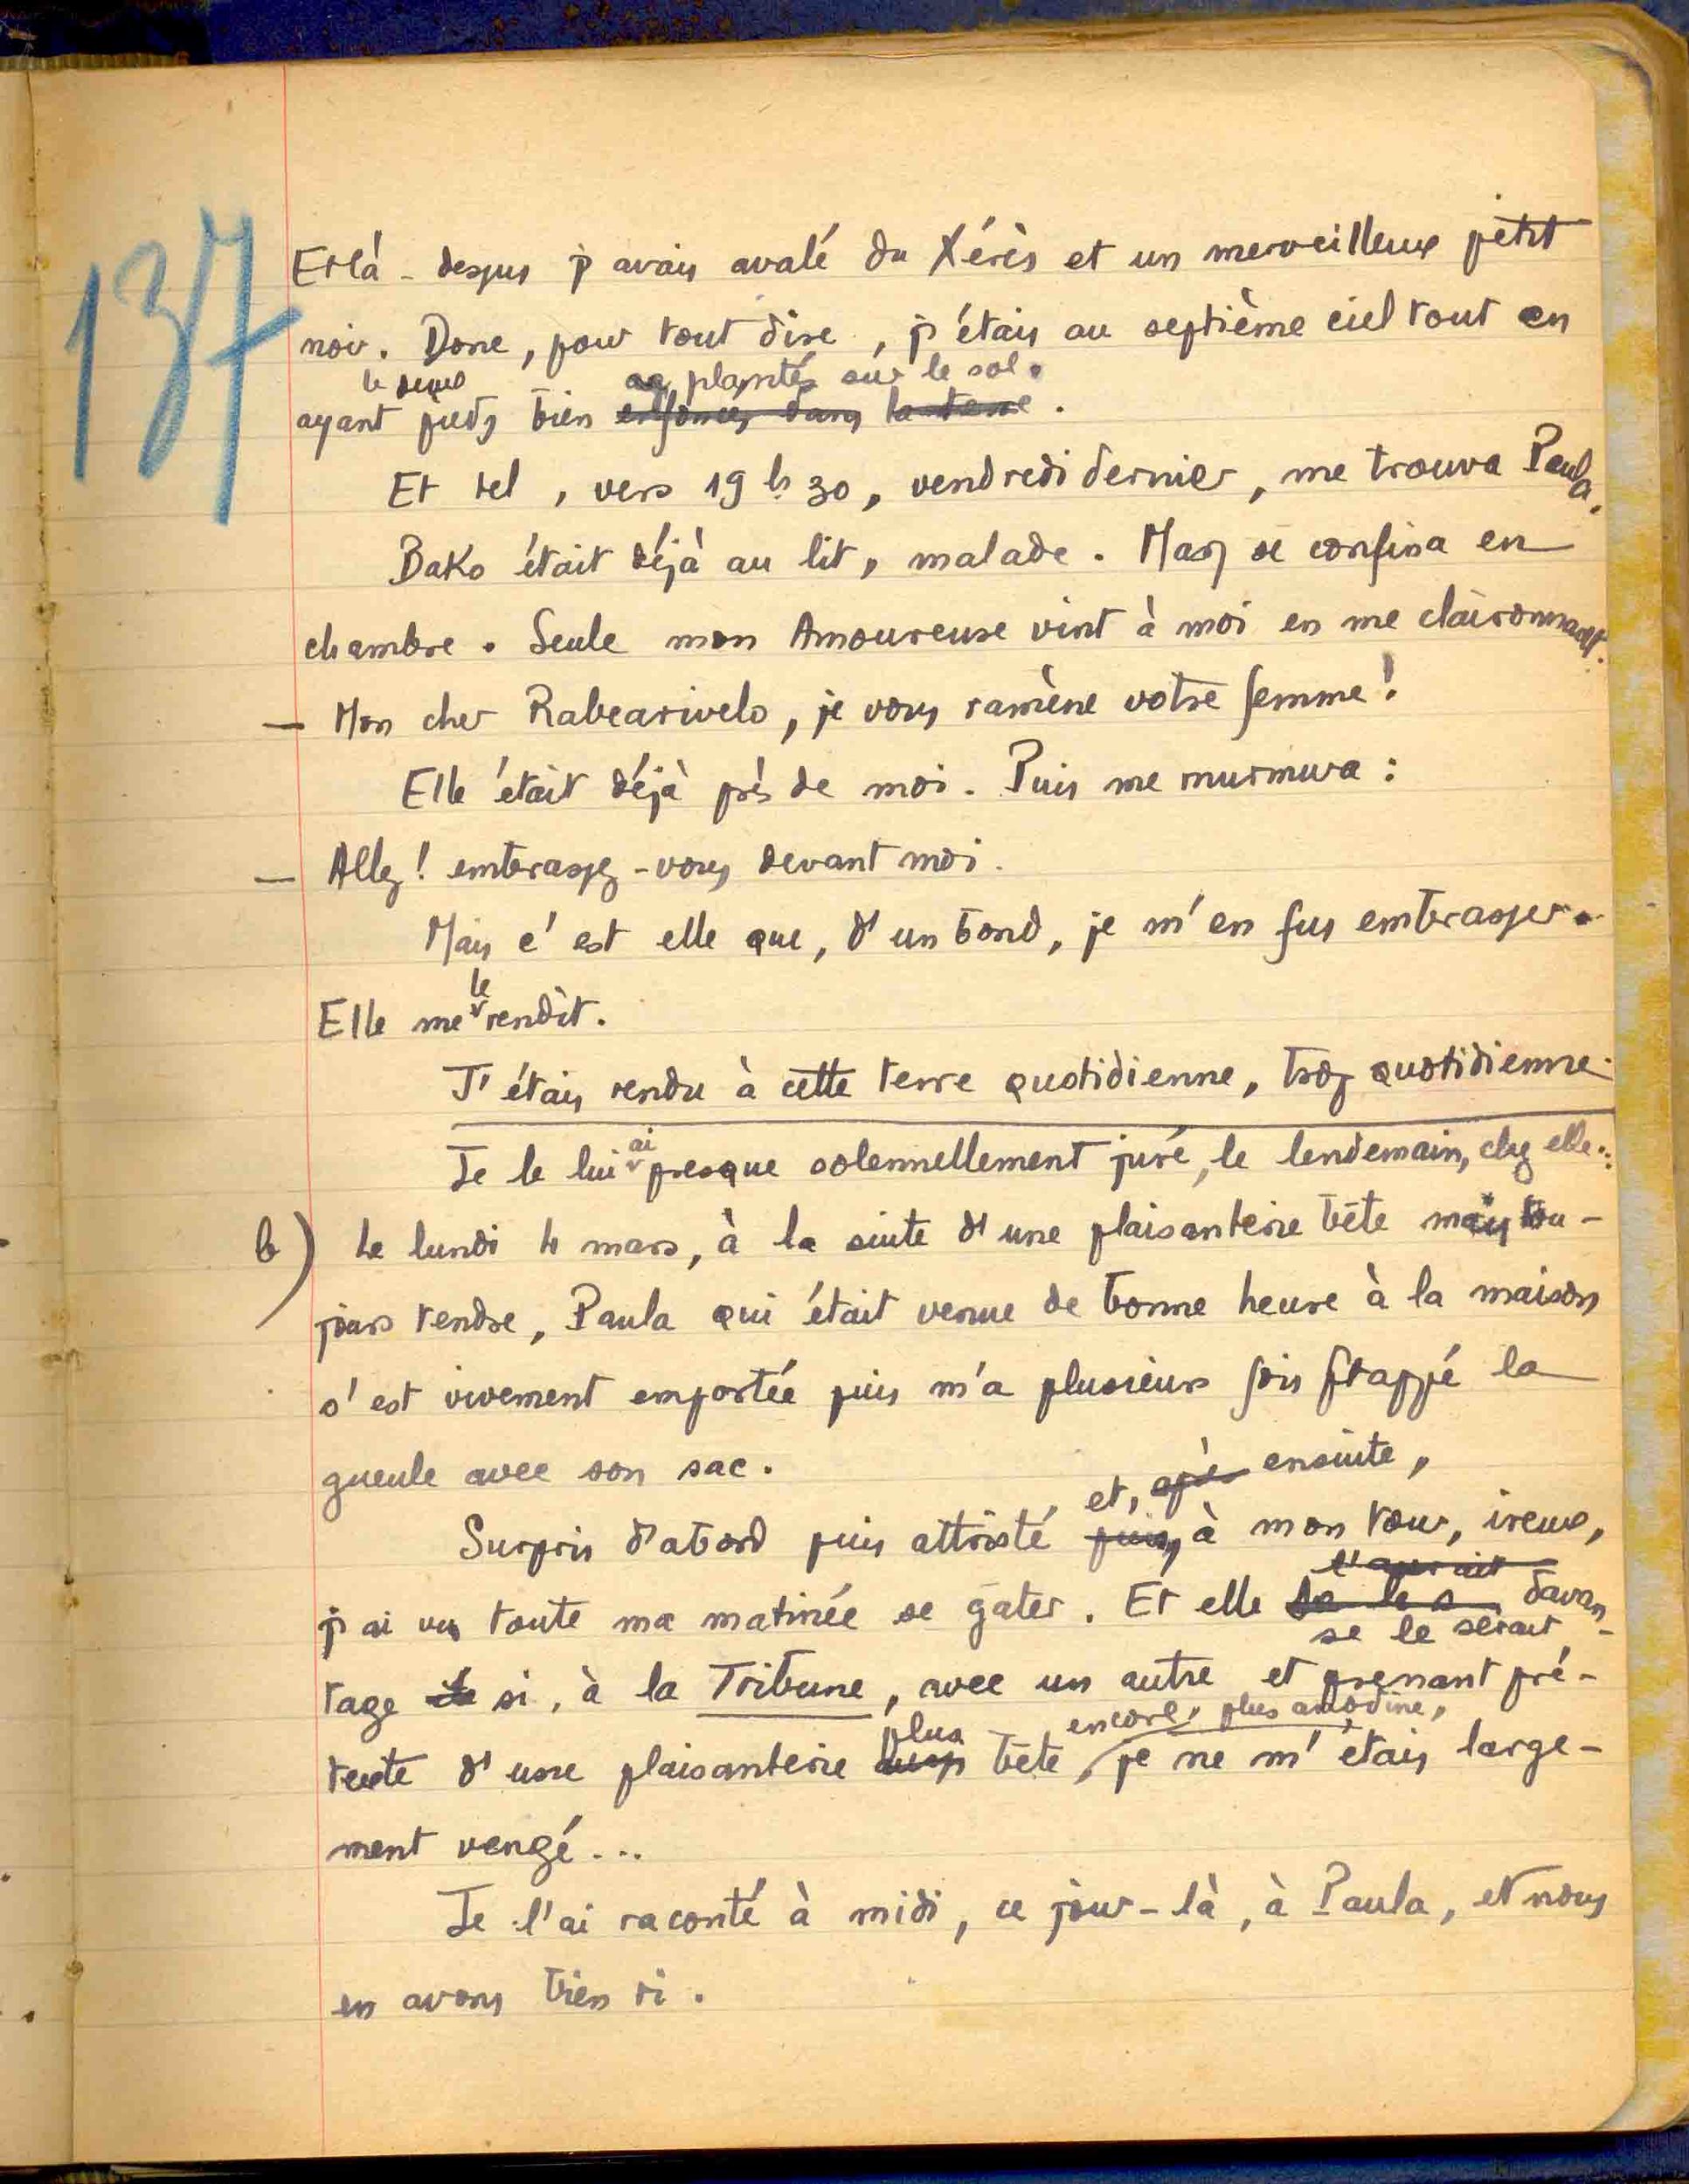 137
Et là-dessus j'avais avalé du Xérès et un merveilleux petit
noir. Donc, pour tout dire, j'étais au septième ciel tout en
plantés sur le sol.
ayant pieds bien enfoncés dans la terre.
Et tel, vers 19 h 30, vendredi dernier, me trouva Paula.
Bako était déjà au lit, malade. Mary se confina en
chambre. Seule mon Amoureuse vint à moi en me claironnant.
— Mon cher Rabearivelo, je vous ramène votre femme!
Elle était déjà près de moi. Puis me murmura :
— Allez! embrassez-vous devant moi.
Mais c'est elle que, d'un bond, je m'en fus embrasser.
le
Elle me rendit.
J'étais rendu à cette terre quotidienne, trop quotidienne.
ai
Je le lui presque solennellement juré, le lendemain, chez elle...
b) Le lundi 4 mars, à la suite d'une plaisanterie bête mais tou-
jours tendre, Paula qui était venue de bonne heure à la maison
s'est vivement emportée puis m'a plusieurs fois frappé la
gueule avec son sac.
et, après ensuite,
Surpris d'abord puis attristé puis, à mon tour, ireux,
l'aurait
j'ai vu toute ma matinée se gâter. Et elle davan-
se le serait
tage si, à la Tribune, avec un autre et prenant pré-
plus encore, plus anodine,
texte d'une plaisanterie aussi bête, je ne m'étais large-
ment vengé...
Je l'ai raconté à midi, ce jour-là, à Paula, et nous
en avons bien ri.